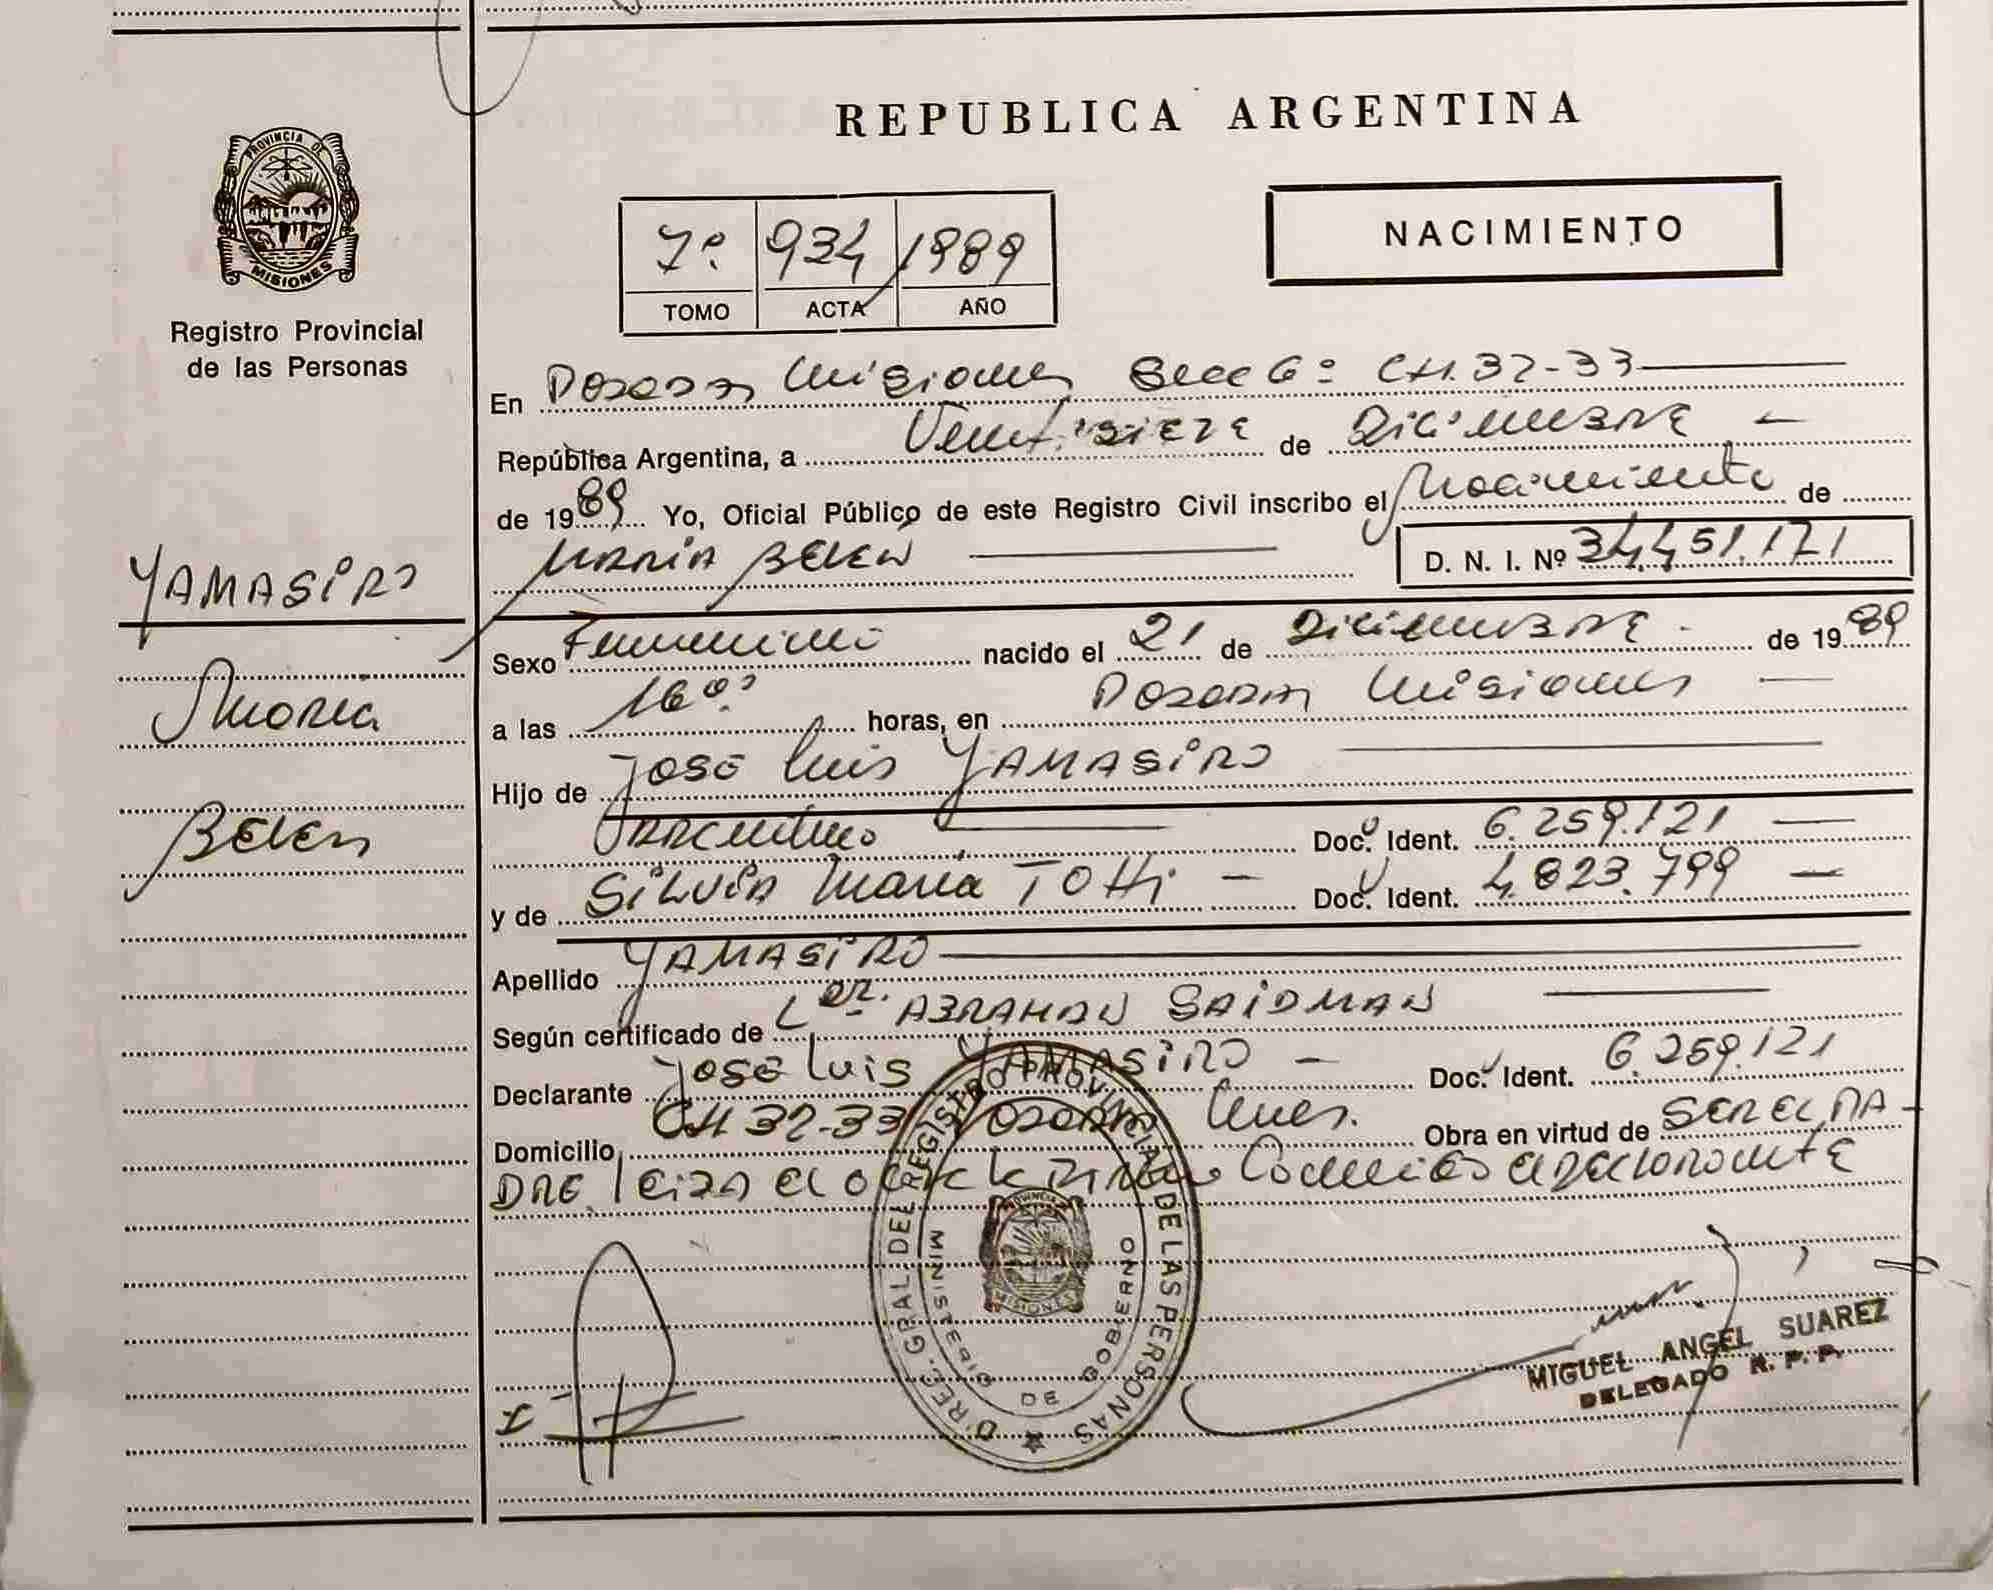 PROVINCIA DE
MISIONES
Registro Provincial
de las Personas
YAMASIRO
Maria
Belen
REPUBLICA ARGENTINA
NACIMIENTO
7º 934 1989
TOMO ACTA AÑO
En Posadas Misiones Secc 6º CH. 32-33
República Argentina, a Veintisiete de Diciembre
de 1989 Yo, Oficial Público de este Registro Civil inscribo el Nacimiento de
MARIA BELEN D. N. I. Nº 34.451.171
Sexo Femenino nacido el 21 de Diciembre de 1989
a las 16 horas, en Posadas Misiones
Hijo de José Luis YAMASIRO
Argentino Doc. Ident. 6.259.121
y de SILVIA Maria TOTTi Doc. Ident. 4.823.799
Apellido YAMASIRO
Según certificado de ABRAHAN SAIDMAN
Declarante José Luis YAMASIRO Doc. Ident. 6.259.121
Domicilio CH 32-33 Posadas Mnes. Obra en virtud de SER EL PA
DRE leida el acta la firma el declarante
D. REC. GRAL. DEL REGISTRO PROVINCIAL DE LAS PERSONAS
MINISTERIO DE GOBIERNO
PROVINCIA DE
MISIONES
MIGUEL ANGEL SUAREZ
DELEGADO R. P. P.